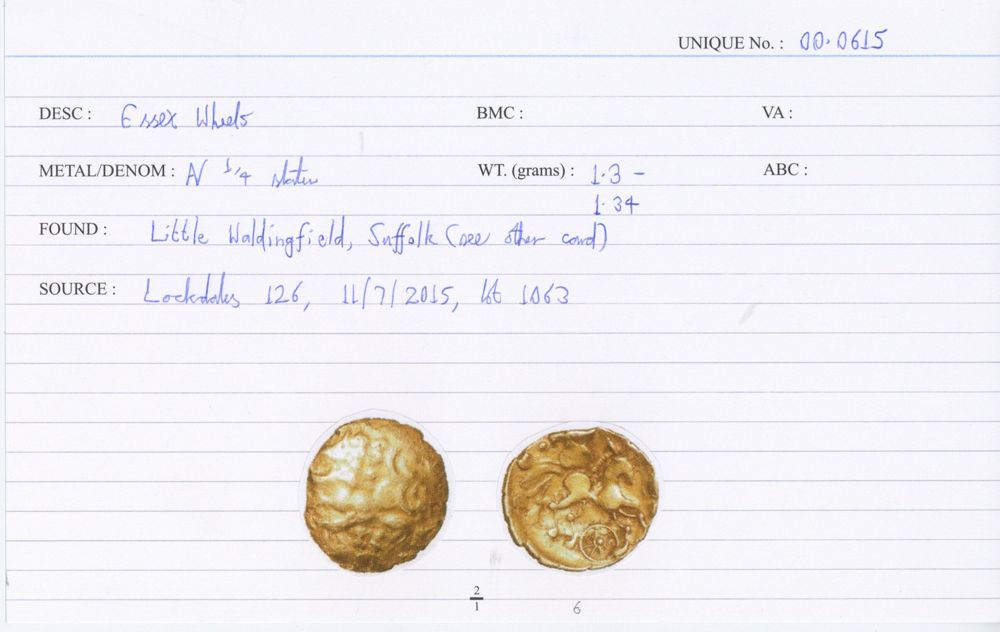 UNIQUE No. : 00.0615
DESC : Essex Wheels BMC : VA :
METAL/DENOM : AV 1/4 stater WT. (grams) : 1.3 – ABC :
1.34
FOUND : Little Waldingfield, Suffolk (see other card)
SOURCE : Lockdales 126, 11/7/2015, lot 1063
2
1
6